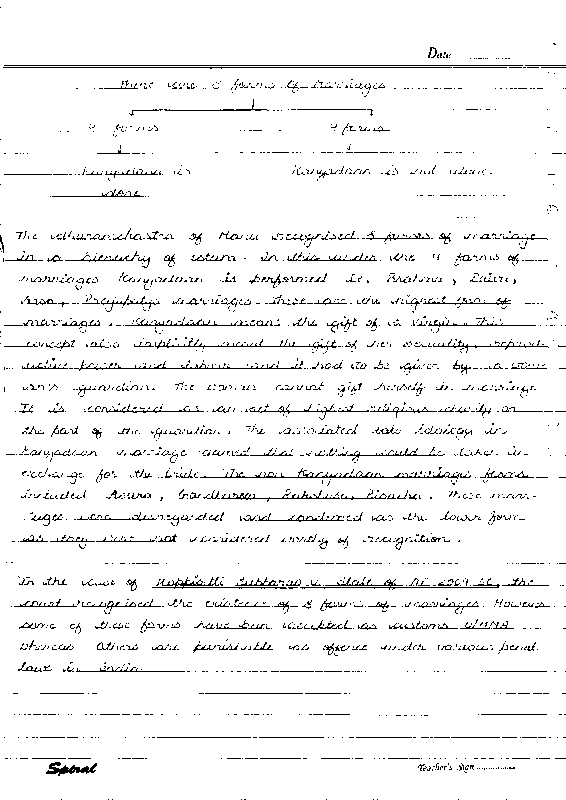 Date ............
There were 8 forms of marriages
4 forms 4 forms
Kanyadaan is Kanyadaan is not done.
done
The dharamshastra of Manu recognised 8 forms of marriage
in a hierarchy of esteem. In this under the 4 forms of
marriages Kanyadaan is performed i.e. Brahma, Daiva,
Arsa, Prajapatya marriages. These are the highest form of
marriages. Kanyadaan means the gift of a virgin. This
concept also implicitly meant the gift of her sexuality, reprod-
uctive power and labour and it had to be given by a wom-
an's guardian. The woman cannot gift herself in marriage.
It is considered as an act of highest religious charity on
the part of the guardian. The associated ideology in
Kanyadaan marriage owned that nothing would be taken in
exchange for the bride. The non Kanyadaan marriage forms
included Asura, Gandharva, Rakshasa, Pisacha. These marr-
iages were disregarded and condemned as the lower form
as they were not considered worthy of recognition.
In the case of Subbarao v. State of AP 2009 SC, the
court recognised the existence of 8 forms of marriages. However
some of these forms have been accepted as customs u/HMA
whereas Others are punishable as offence under various penal
laws in India
Spiral Teacher's Sign ............